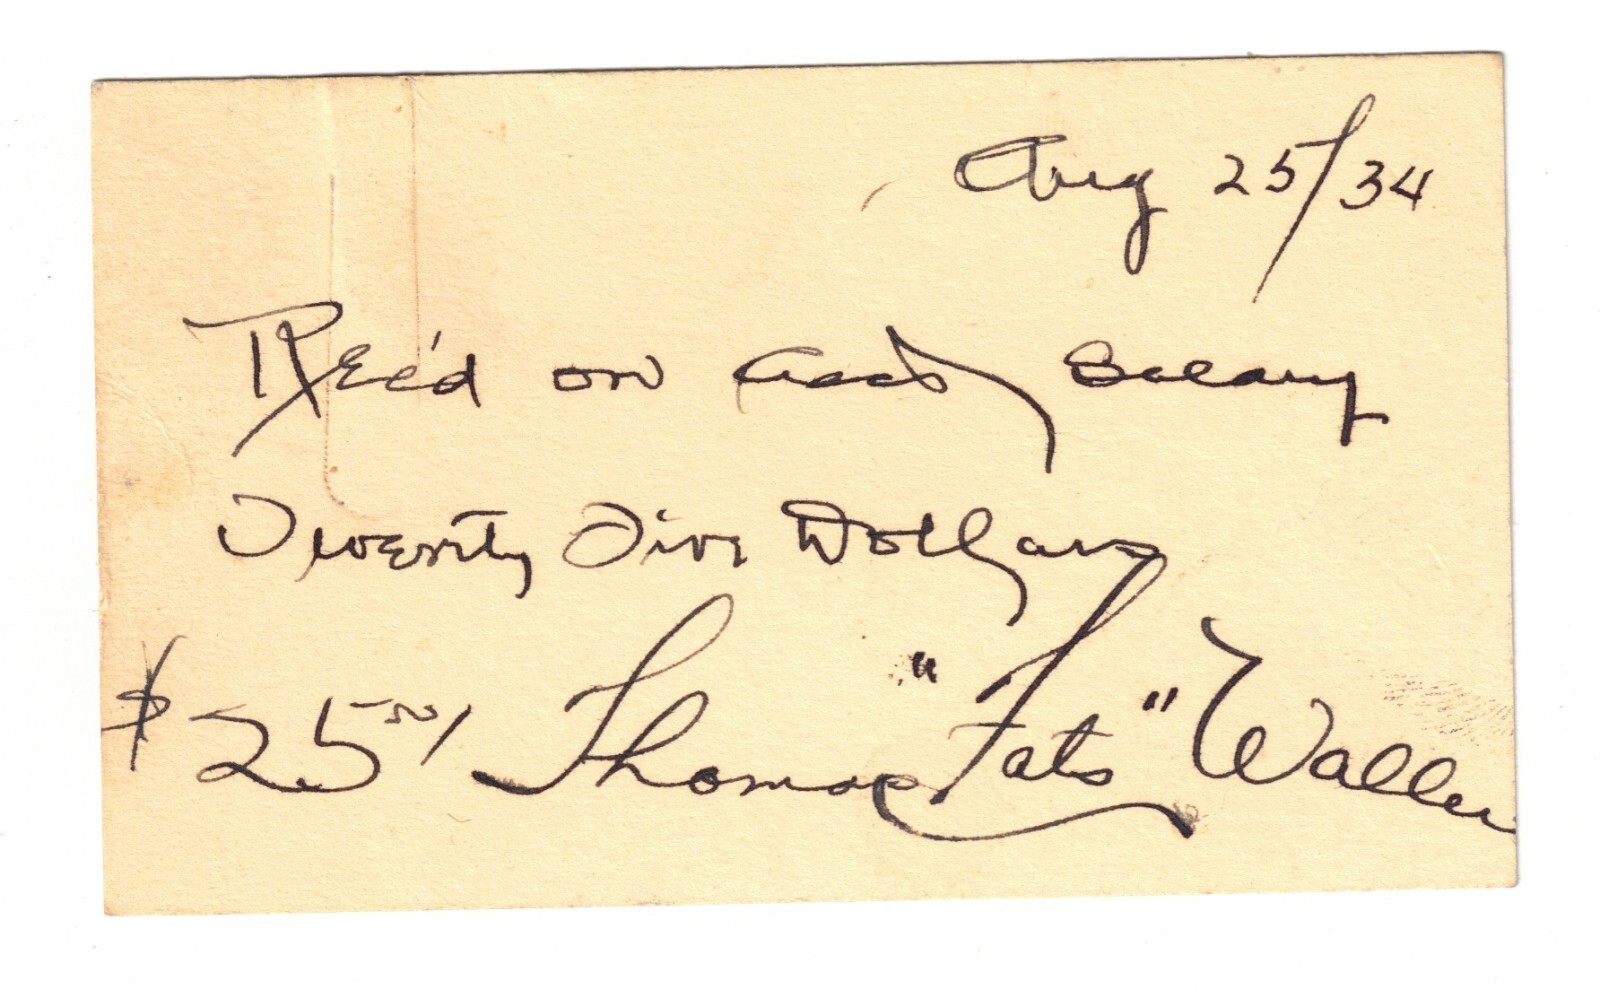 Aug 25/34
Rec'd on Acct Salary
Twenty Five Dollars
$25 00/ Thomas "Fats" Waller